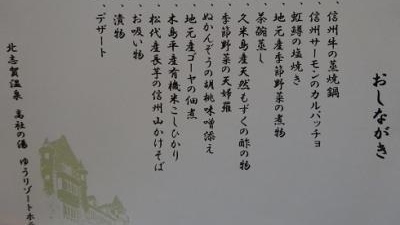 おしながき
・信州牛の菫焼鍋
・信州サーモンのカルパッチョ
・虹鱒の塩焼き
・地元産季節野菜の煮物
・茶碗蒸し
・久米島産天然もずくの酢の物
・季節野菜の天婦羅
・ぬかんぞうの胡桃味噌添え
・地元産ゴーヤの佃煮
・木島平産有機米こしひかり
・松代産長芋の信州山かけそば
・お吸い物
・漬物
・デザート
北志賀温泉 高社の湯 ゆうリゾートホ